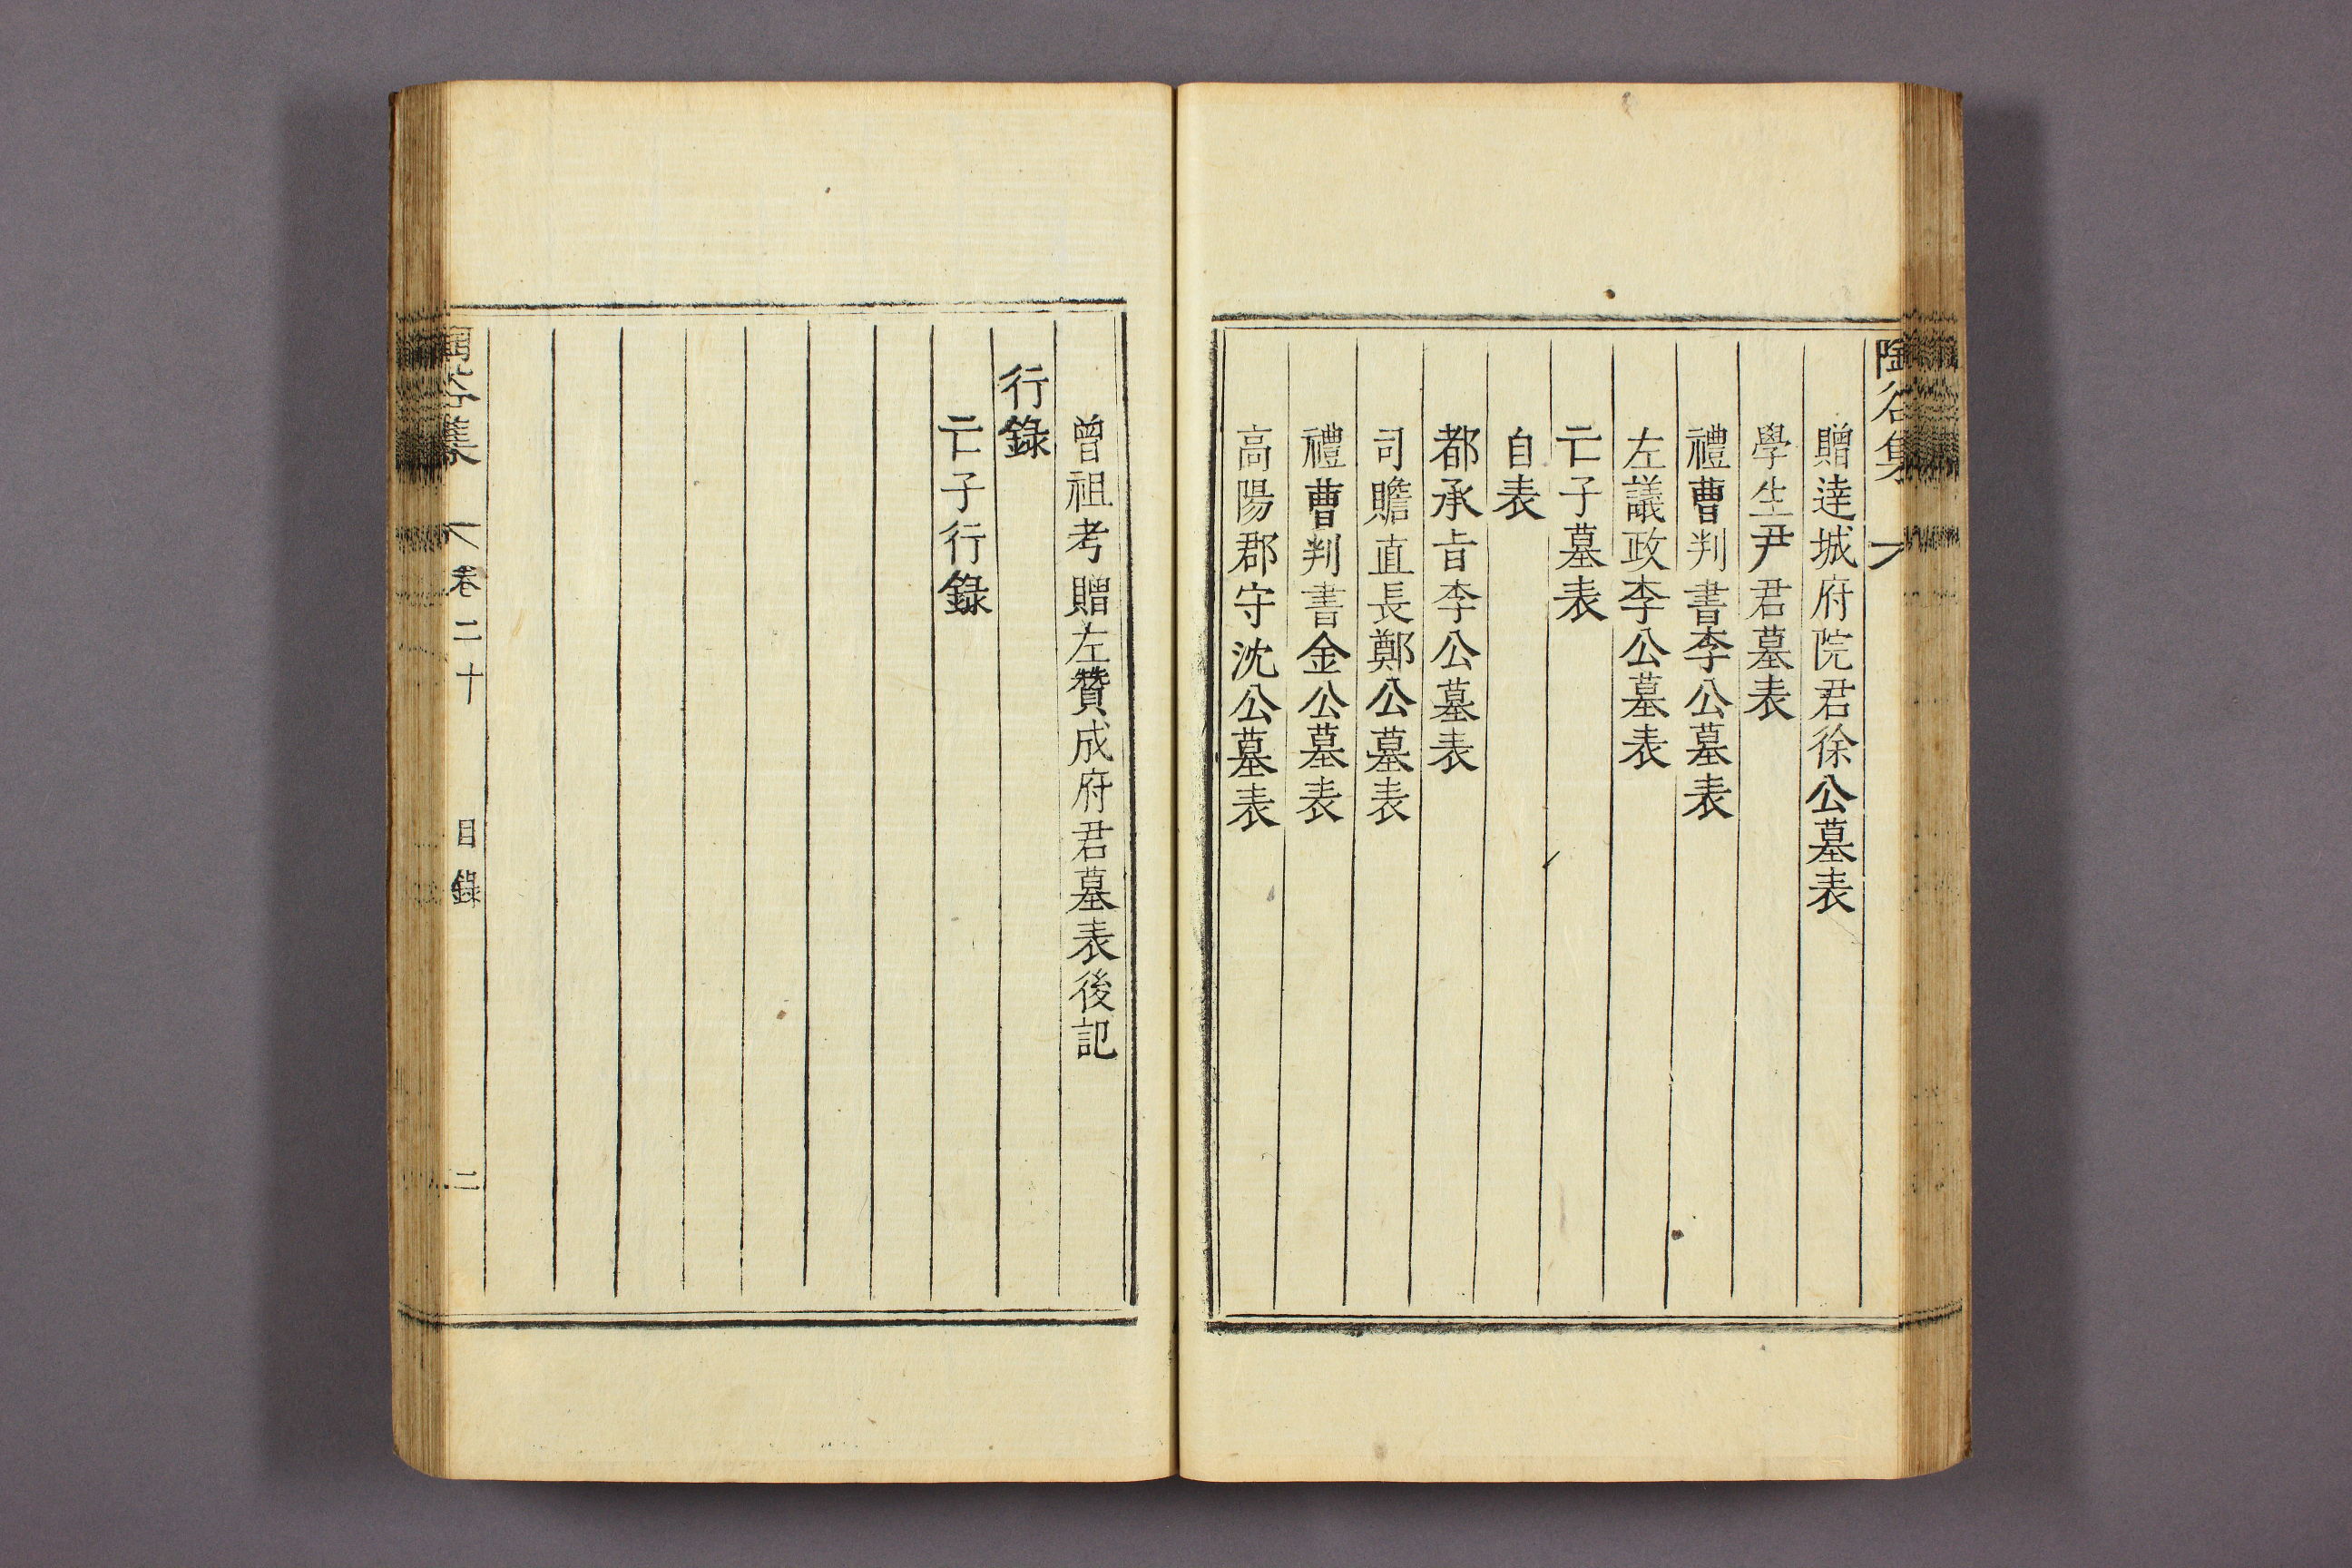 陶谷集
贈達城府院君徐公墓表
學生尹君墓表
禮曹判書李公墓表
左議政李公墓表
亡子墓表
自表
都承旨李公墓表
司贍直長鄭公墓表
禮曹判書金公墓表
高陽郡守沈公墓表
曾祖考贈左贊成府君墓表後記
行錄
亡子行錄
陶谷集 卷二十 目錄 二